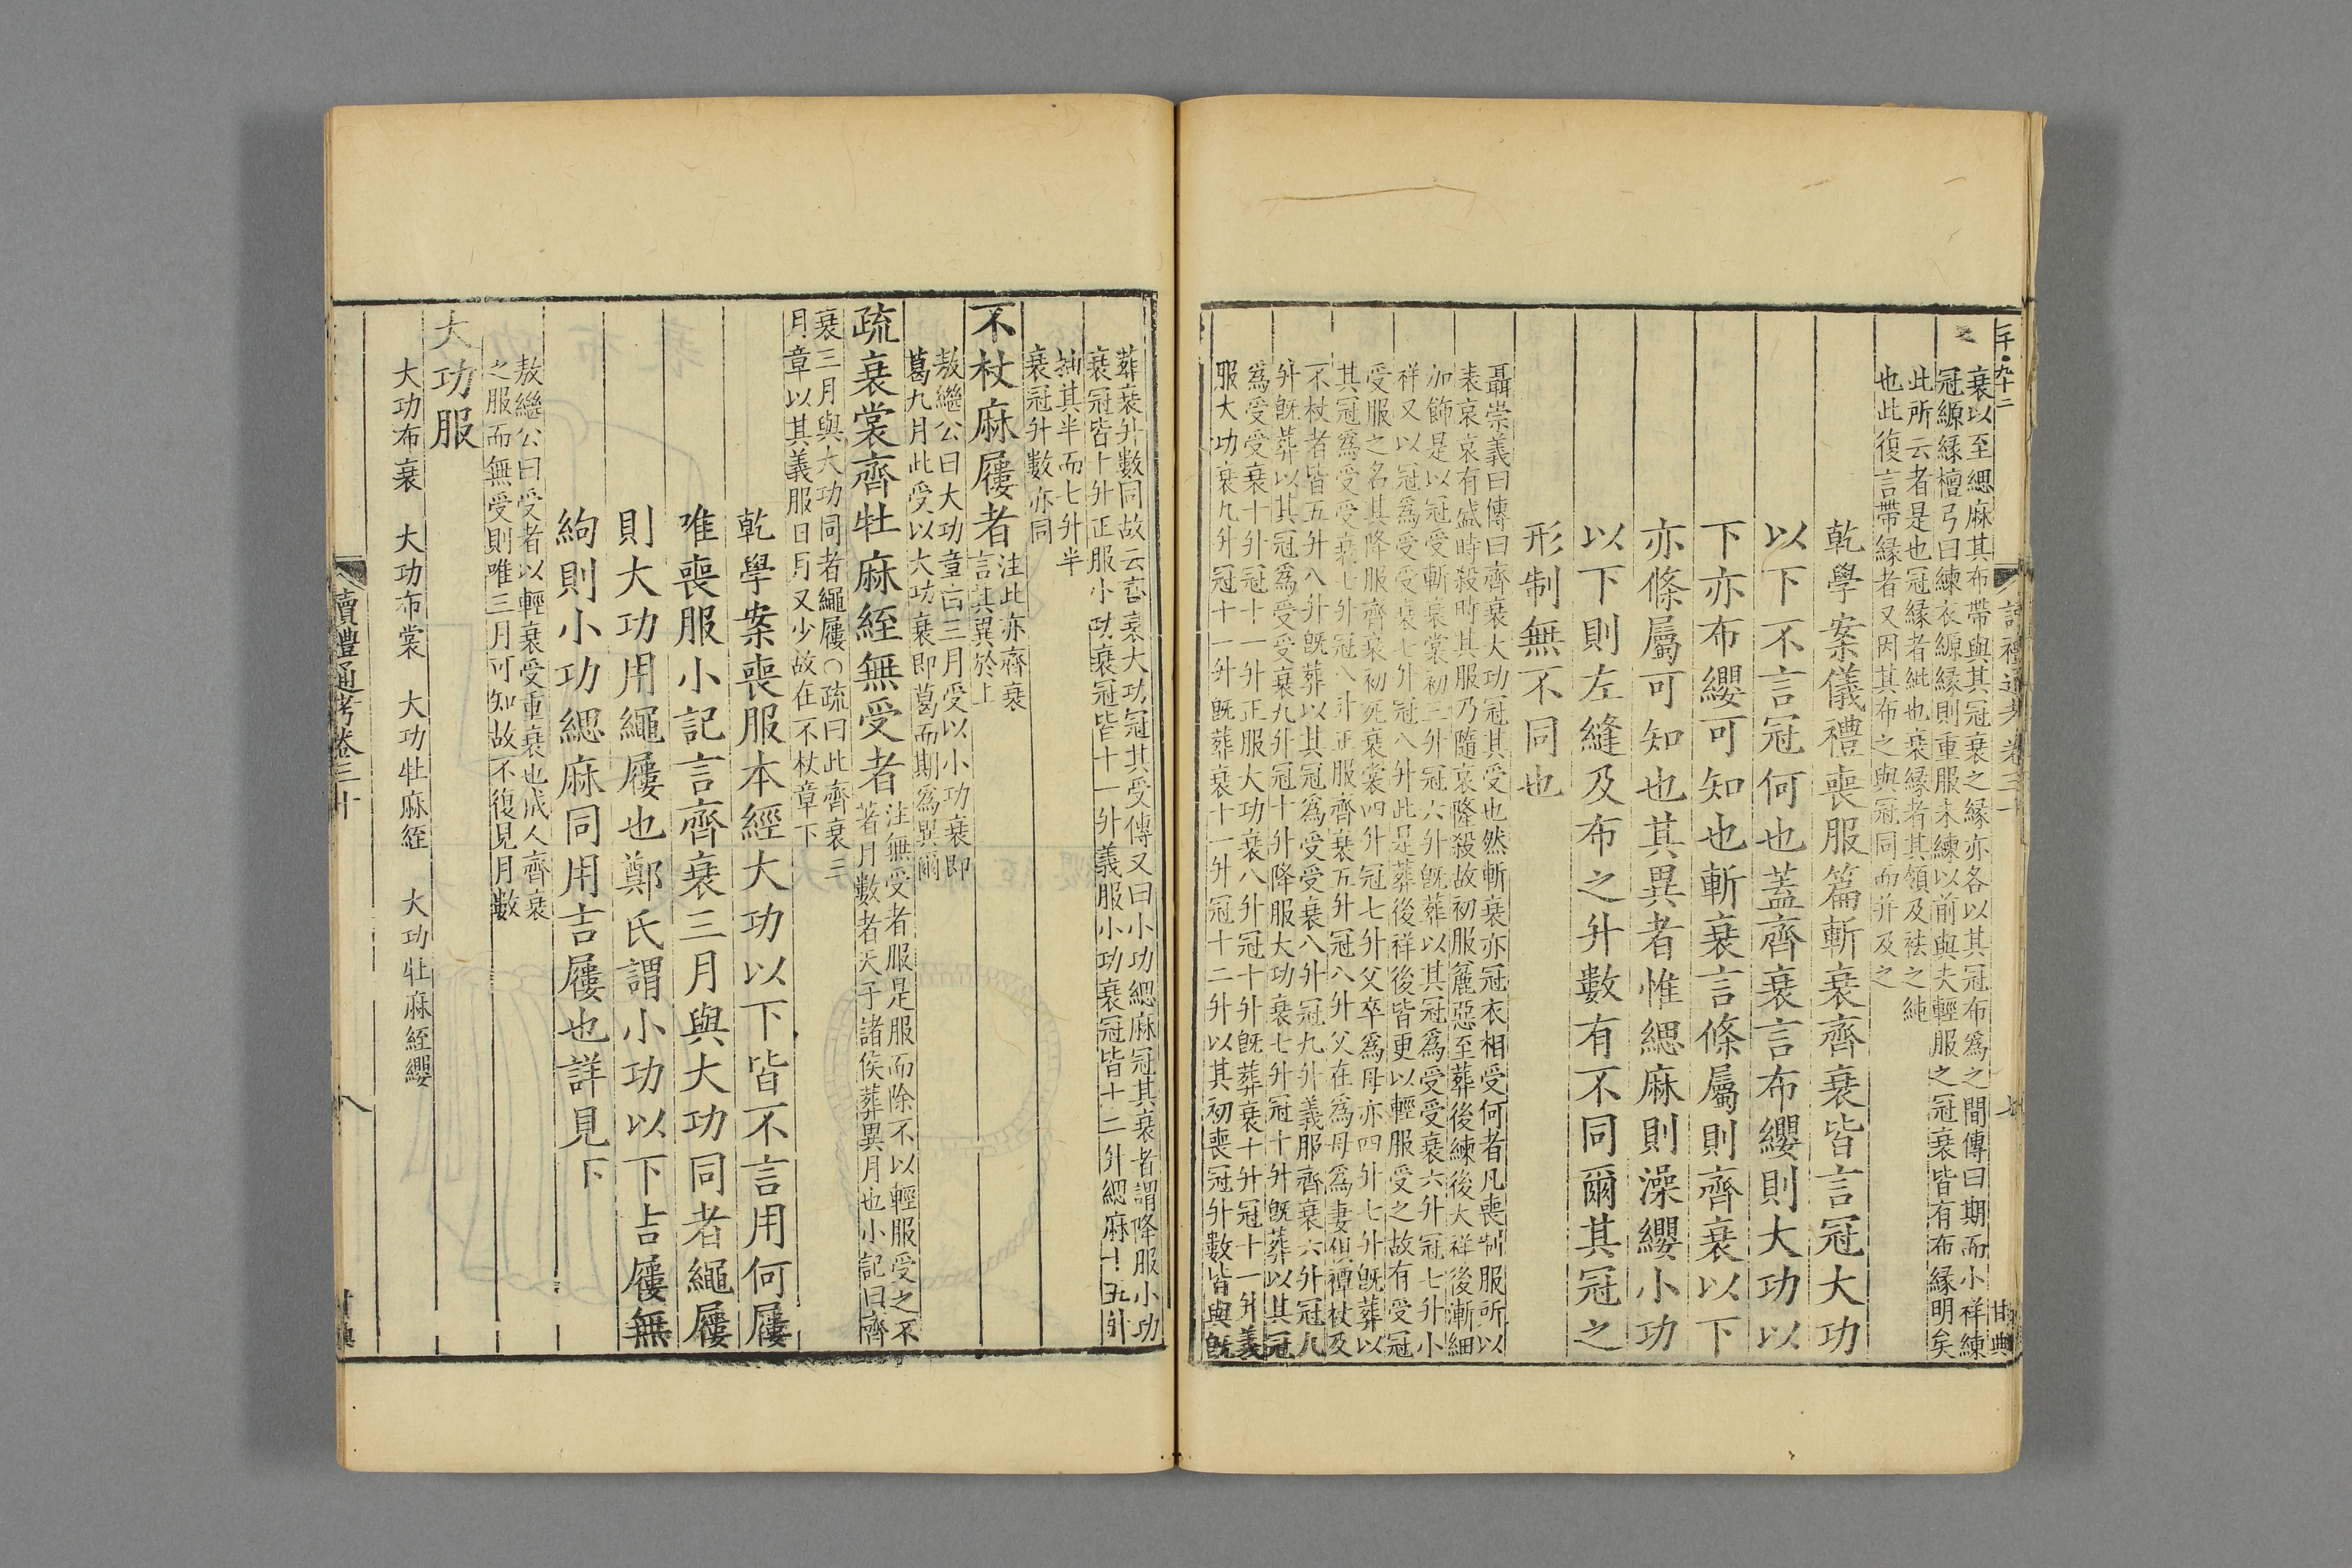 衰以至緦麻其布帶與其冠衰之緣亦各以其冠布爲之間傳曰期而小祥練
冠縓緣檀弓曰練衣縓緣則重服未練以前與夫輕服之冠衰皆有布緣明矣
此所云者是也冠緣者紕也衰緣者其領及袪之純
也此復言帶緣者又因其布之與冠同而并及之
乾學案儀禮喪服篇斬衰齊衰皆言冠大功
以下不言冠何也蓋齊衰言布纓則大功以
下亦布纓可知也斬衰言條屬則齊衰以下
亦條屬可知也其異者惟緦麻則澡纓小功
以下則左縫及布之升數有不同爾其冠之
形制無不同也
聶崇義曰傳曰齊衰大功冠其受也然斬衰亦冠衣相受何者凡喪制服所以
表哀哀有盛時殺時其服乃隨哀隆殺故初服麤惡至葬後練後大祥後漸細
加飾是以冠受斬衰裳初三升冠六升旣葬以其冠爲受受衰六升冠七升小
祥又以冠爲受受衰七升冠八升此是葬後祥後皆更以輕服受之故有受冠
受服之名其降服齊衰初死衰裳四升冠七升父卒爲母亦四升七升旣葬以
其冠爲受受衰七升冠八升正服齊衰五升冠八升父在爲母爲妻但禫杖及
不杖者皆五升八升旣葬以其冠爲受受衰八升冠九升義服齊衰六升冠九
升旣葬以其冠爲受受衰九升冠十升降服大功衰七升冠十升旣葬以其冠
爲受受衰十升冠十一升正服大功衰八升冠十升旣葬衰十升冠十一升義
服大功衰九升冠十一升旣葬衰十一升冠十二升以其初喪冠升數皆與旣
葬衰升數同故云齊衰大功冠其受傳又曰小功緦麻冠其衰者謂降服小功
衰冠皆十升正服小功衰冠皆十一升義服小功衰冠皆十二升緦麻十五升
抽其半而七升半
衰冠升數亦同
不杖麻屨者注此亦齊衰
言其異於上
敖繼公曰大功章言三月受以小功衰即
葛九月此受以大功衰即葛而期爲異爾
疏衰裳齊牡麻絰無受者注無受者服是服而除不以輕服受之不
著月數者天子諸侯葬異月也小記曰齊
衰三月與大功同者繩屨○疏曰此齊衰三
月章以其義服日月又少故在不杖章下
乾學案喪服本經大功以下皆不言用何屨
唯喪服小記言齊衰三月與大功同者繩屨
則大功用繩屨也鄭氏謂小功以下吉屨無
絇則小功緦麻同用吉屨也詳見下
敖繼公曰受者以輕衰受重衰也成人齊衰
之服而無受則唯三月可知故不復見月數
大功服
大功布衰　大功布裳　大功牡麻絰　大功牡麻絰纓
讀禮通考卷三十　八